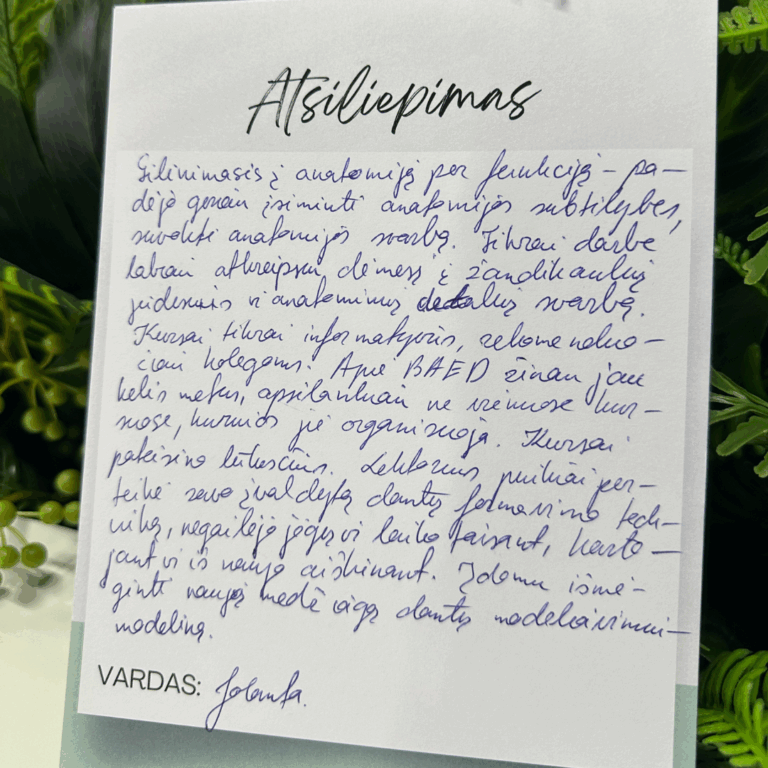 Atsiliepimas
Gilinimasis į anatomiją per funkciją – pa–
dėjo geriau įsiminti anatomijos subtilybes,
suvokti anatomijos svarbą. Tikrai darbe
labiau atkreipsiu dėmesį į žandikaulių
judesius ir anatominių detalių svarbą.
Kursai tikrai informatyvūs, rekomenduo–
čiau kolegoms. Apie BAED žinau jau
kelis metus, apsilankiau ne viename kur–
suose, kuriuos jie organizuoja. Kursai
pateisino lūkesčius. Lektorius puikiai per–
teikė savo įvaldytą dantų formavimo tech–
niką, negailėjo jėgų ir laiko taisant, karto–
jant ir iš naujo aiškinant. Įdomu išmė–
ginti naują medžiagą dantų modeliavimui–
modeliną.
VARDAS: Jolanta.